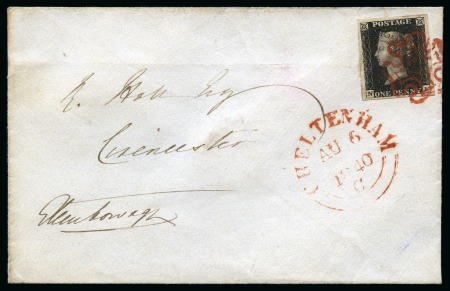 POSTAGE
N ONE PENNY
E. Hall Esq
Cirencester
CHELTENHAM
AU 6
1840
C